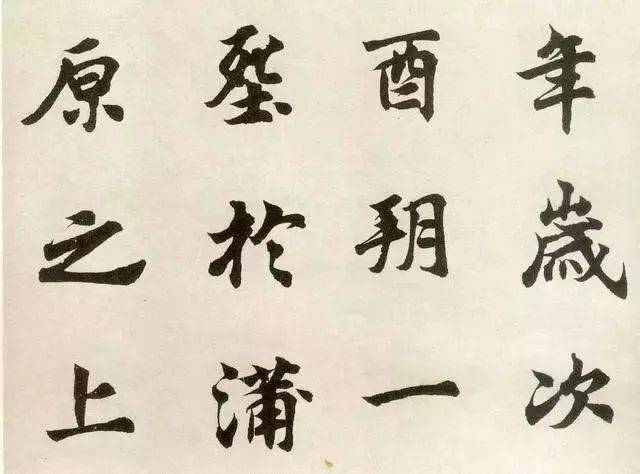 年嵗次
酉朔一
於蒲
原之上